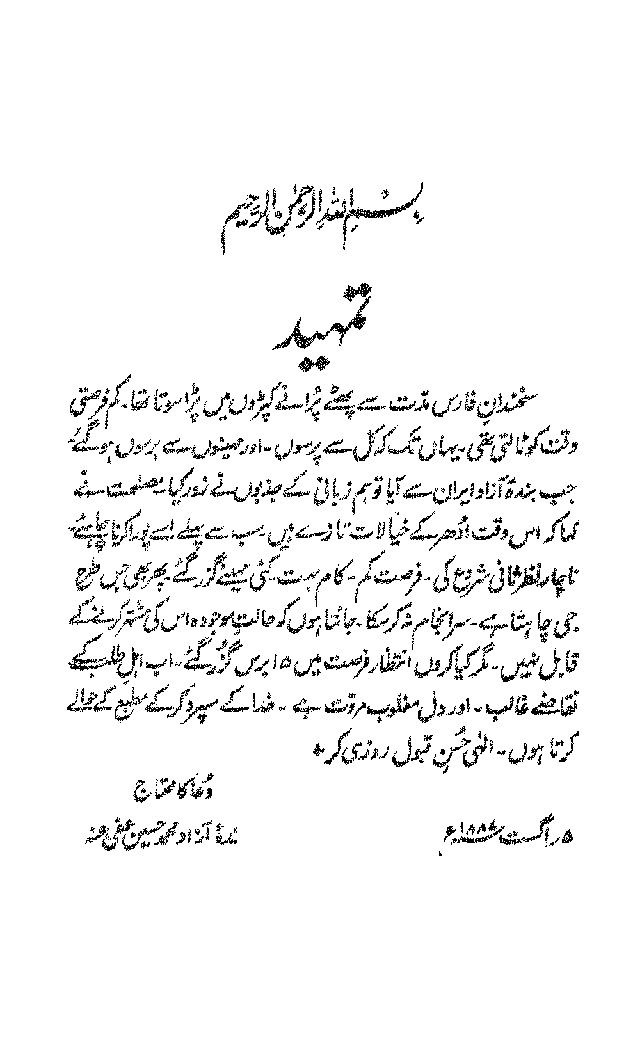 بسم اللہ الرحمٰن الرحیم
تمہید
سخندانِ فارس مدت سے پھٹے پُرانے کپڑوں میں پڑا سوتا تھا۔ کم فرصتی
وقت کو ٹالتی تھی۔ یہاں تک کہ کل سے پرسوں۔ اور مہینوں سے برسوں ہو گئے
جب بندۂ آزاد ایران سے آیا تو ہم زبانی کے جذبوں نے زور کیا۔ مصلحت نے
کہا کہ اس وقت اُدھر کے خیالات تازے ہیں۔ سب سے پہلے اسے پورا کرنا چاہئے۔
ناچار نظر ثانی شروع کی۔ فرصت کم۔ کام بہت۔ کئی مہینے گزر گئے۔ پھر بھی جس طرح
جی چاہتا ہے۔ سرانجام نہ کر سکا۔ جانتا ہوں کہ حالتِ موجودہ اس کی مشتہر کرنے کے
قابل نہیں۔ مگر کیا کروں انتظار فرصت میں ۱۵ برس گزر گئے۔ اب اہلِ طلب کے
تقاضے غالب۔ اور دل مغلوب مروّت ہے۔ خدا کے سپرد کر کے مطبع کے حوالے
کرتا ہوں۔ الٰہی حُسنِ قبول روزی کر +
دُعا کا محتاج
بندۂ آزاد محمد حسین عفی عنہ
۵ اگست ۱۸۸۷ء